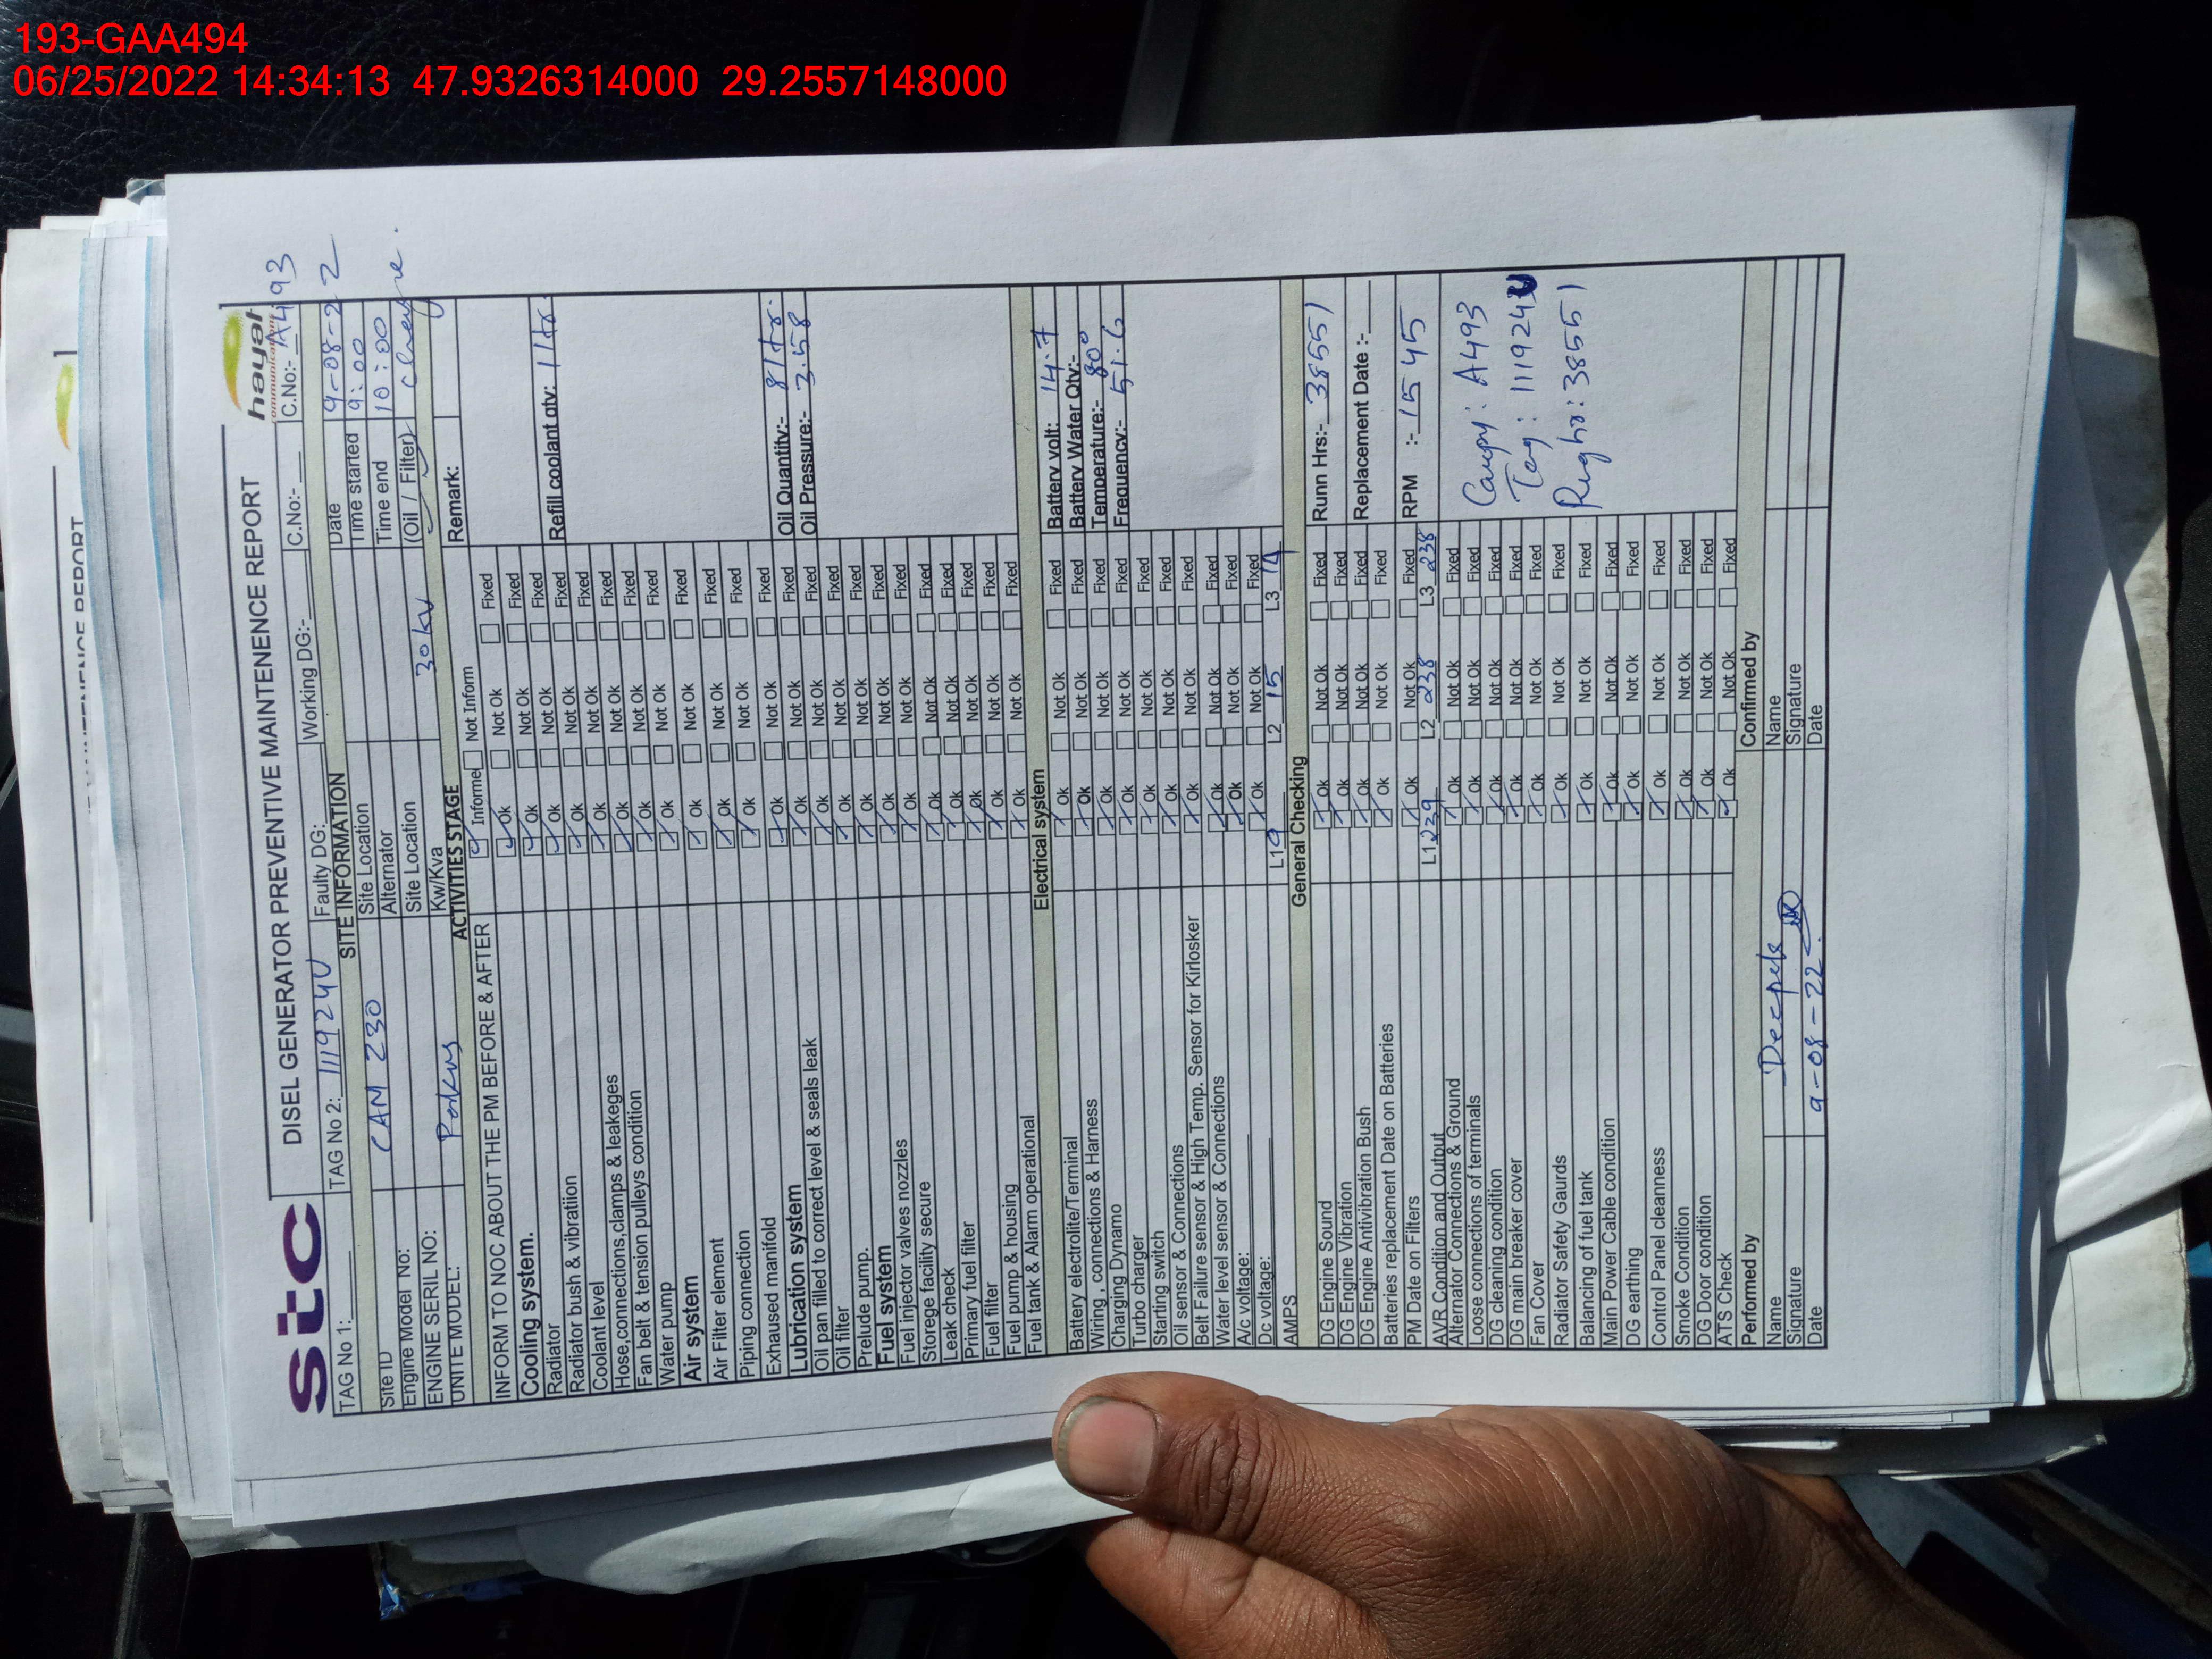 193-GAA494
06/25/2022 14:34:13 47.9326314000 29.2557148000
stc
DISEL GENERATOR PREVENTIVE MAINTENENCE REPORT
hayat
ommunications
TAG No 1:
TAG No 2: 111924U
Faulty DG:
Working DG:-
C.No:-
C.No:- A4493
SITE INFORMATION
Site ID CAM 230 Site Location Date 9-08-22
Engine Model No: Alternator Time started 9:00
ENGINE SERIL NO: Site Location Time end 10:00
UNITE MODEL: Perkins Kw/Kva 30kv (Oil / Filter) change.
ACTIVITIES STAGE
Remark:
INFORM TO NOC ABOUT THE PM BEFORE & AFTER Informe Not Inform
Cooling system. Ok Not Ok Fixed
Radiator Ok Not Ok Fixed
Radiator bush & vibratiion Ok Not Ok Fixed
Coolant level Ok Not Ok Fixed Refill coolant qty: 1 ltr.
Hose,connections,clamps & leakeges Ok Not Ok Fixed
Fan belt & tension pulleys condition Ok Not Ok Fixed
Water pump Ok Not Ok Fixed
Air system Ok Not Ok Fixed
Air Filter element Ok Not Ok Fixed
Piping connection Ok Not Ok Fixed
Exhaused manifold Ok Not Ok Fixed
Lubrication system Ok Not Ok Fixed
Oil pan filled to correct level & seals leak Ok Not Ok Fixed Oil Quantity:- 8 ltr.
Oil filter Ok Not Ok Fixed Oil Pressure:- 3.58
Prelude pump. Ok Not Ok Fixed
Fuel system Ok Not Ok Fixed
Fuel injector valves nozzles Ok Not Ok Fixed
Storege facility secure Ok Not Ok Fixed
Leak check Ok Not Ok Fixed
Primary fuel filter Ok Not Ok Fixed
Fuel filter Ok Not Ok Fixed
Fuel pump & housing Ok Not Ok Fixed
Fuel tank & Alarm operational Ok Not Ok Fixed
Electrical system
Battery electrolite/Terminal Ok Not Ok Fixed Battery volt: 14.7
Wiring , connections & Harness Ok Not Ok Fixed Battery Water Qty:-
Charging Dynamo Ok Not Ok Fixed Temperature:- 80°
Turbo charger Ok Not Ok Fixed Frequency:- 51.6
Starting switch Ok Not Ok Fixed
Oil sensor & Connections Ok Not Ok Fixed
Belt Failure sensor & High Temp. Sensor for Kirlosker Ok Not Ok Fixed
Water level sensor & Connections Ok Not Ok Fixed
A/c voltage: Ok Not Ok Fixed
Dc voltage: Ok Not Ok Fixed
AMPS L1 9 L2 15 L3 14
General Checking
DG Engine Sound Ok Not Ok Fixed Runn Hrs:- 38551
DG Engine Vibration Ok Not Ok Fixed
DG Engine Antivibration Bush Ok Not Ok Fixed Replacement Date :-
Batteries replacement Date on Batteries Ok Not Ok Fixed
PM Date on Filters Ok Not Ok Fixed RPM :- 1545
AVR Condition and Output L1 239 L2 238 L3 238
Alternator Connections & Ground Ok Not Ok Fixed
Loose connections of terminals Ok Not Ok Fixed
DG cleaning condition Ok Not Ok Fixed
DG main breaker cover Ok Not Ok Fixed
Fan Cover Ok Not Ok Fixed
Radiator Safety Gaurds Ok Not Ok Fixed
Balancing of fuel tank Ok Not Ok Fixed
Main Power Cable condition Ok Not Ok Fixed
DG earthing Ok Not Ok Fixed
Control Panel cleanness Ok Not Ok Fixed
Smoke Condition Ok Not Ok Fixed
DG Door condition Ok Not Ok Fixed
ATS Check Ok Not Ok Fixed
A4493
Tag: 111924U
38551
Performed by Confirmed by
Name Name
Signature Signature
Date 9-08-22 Date